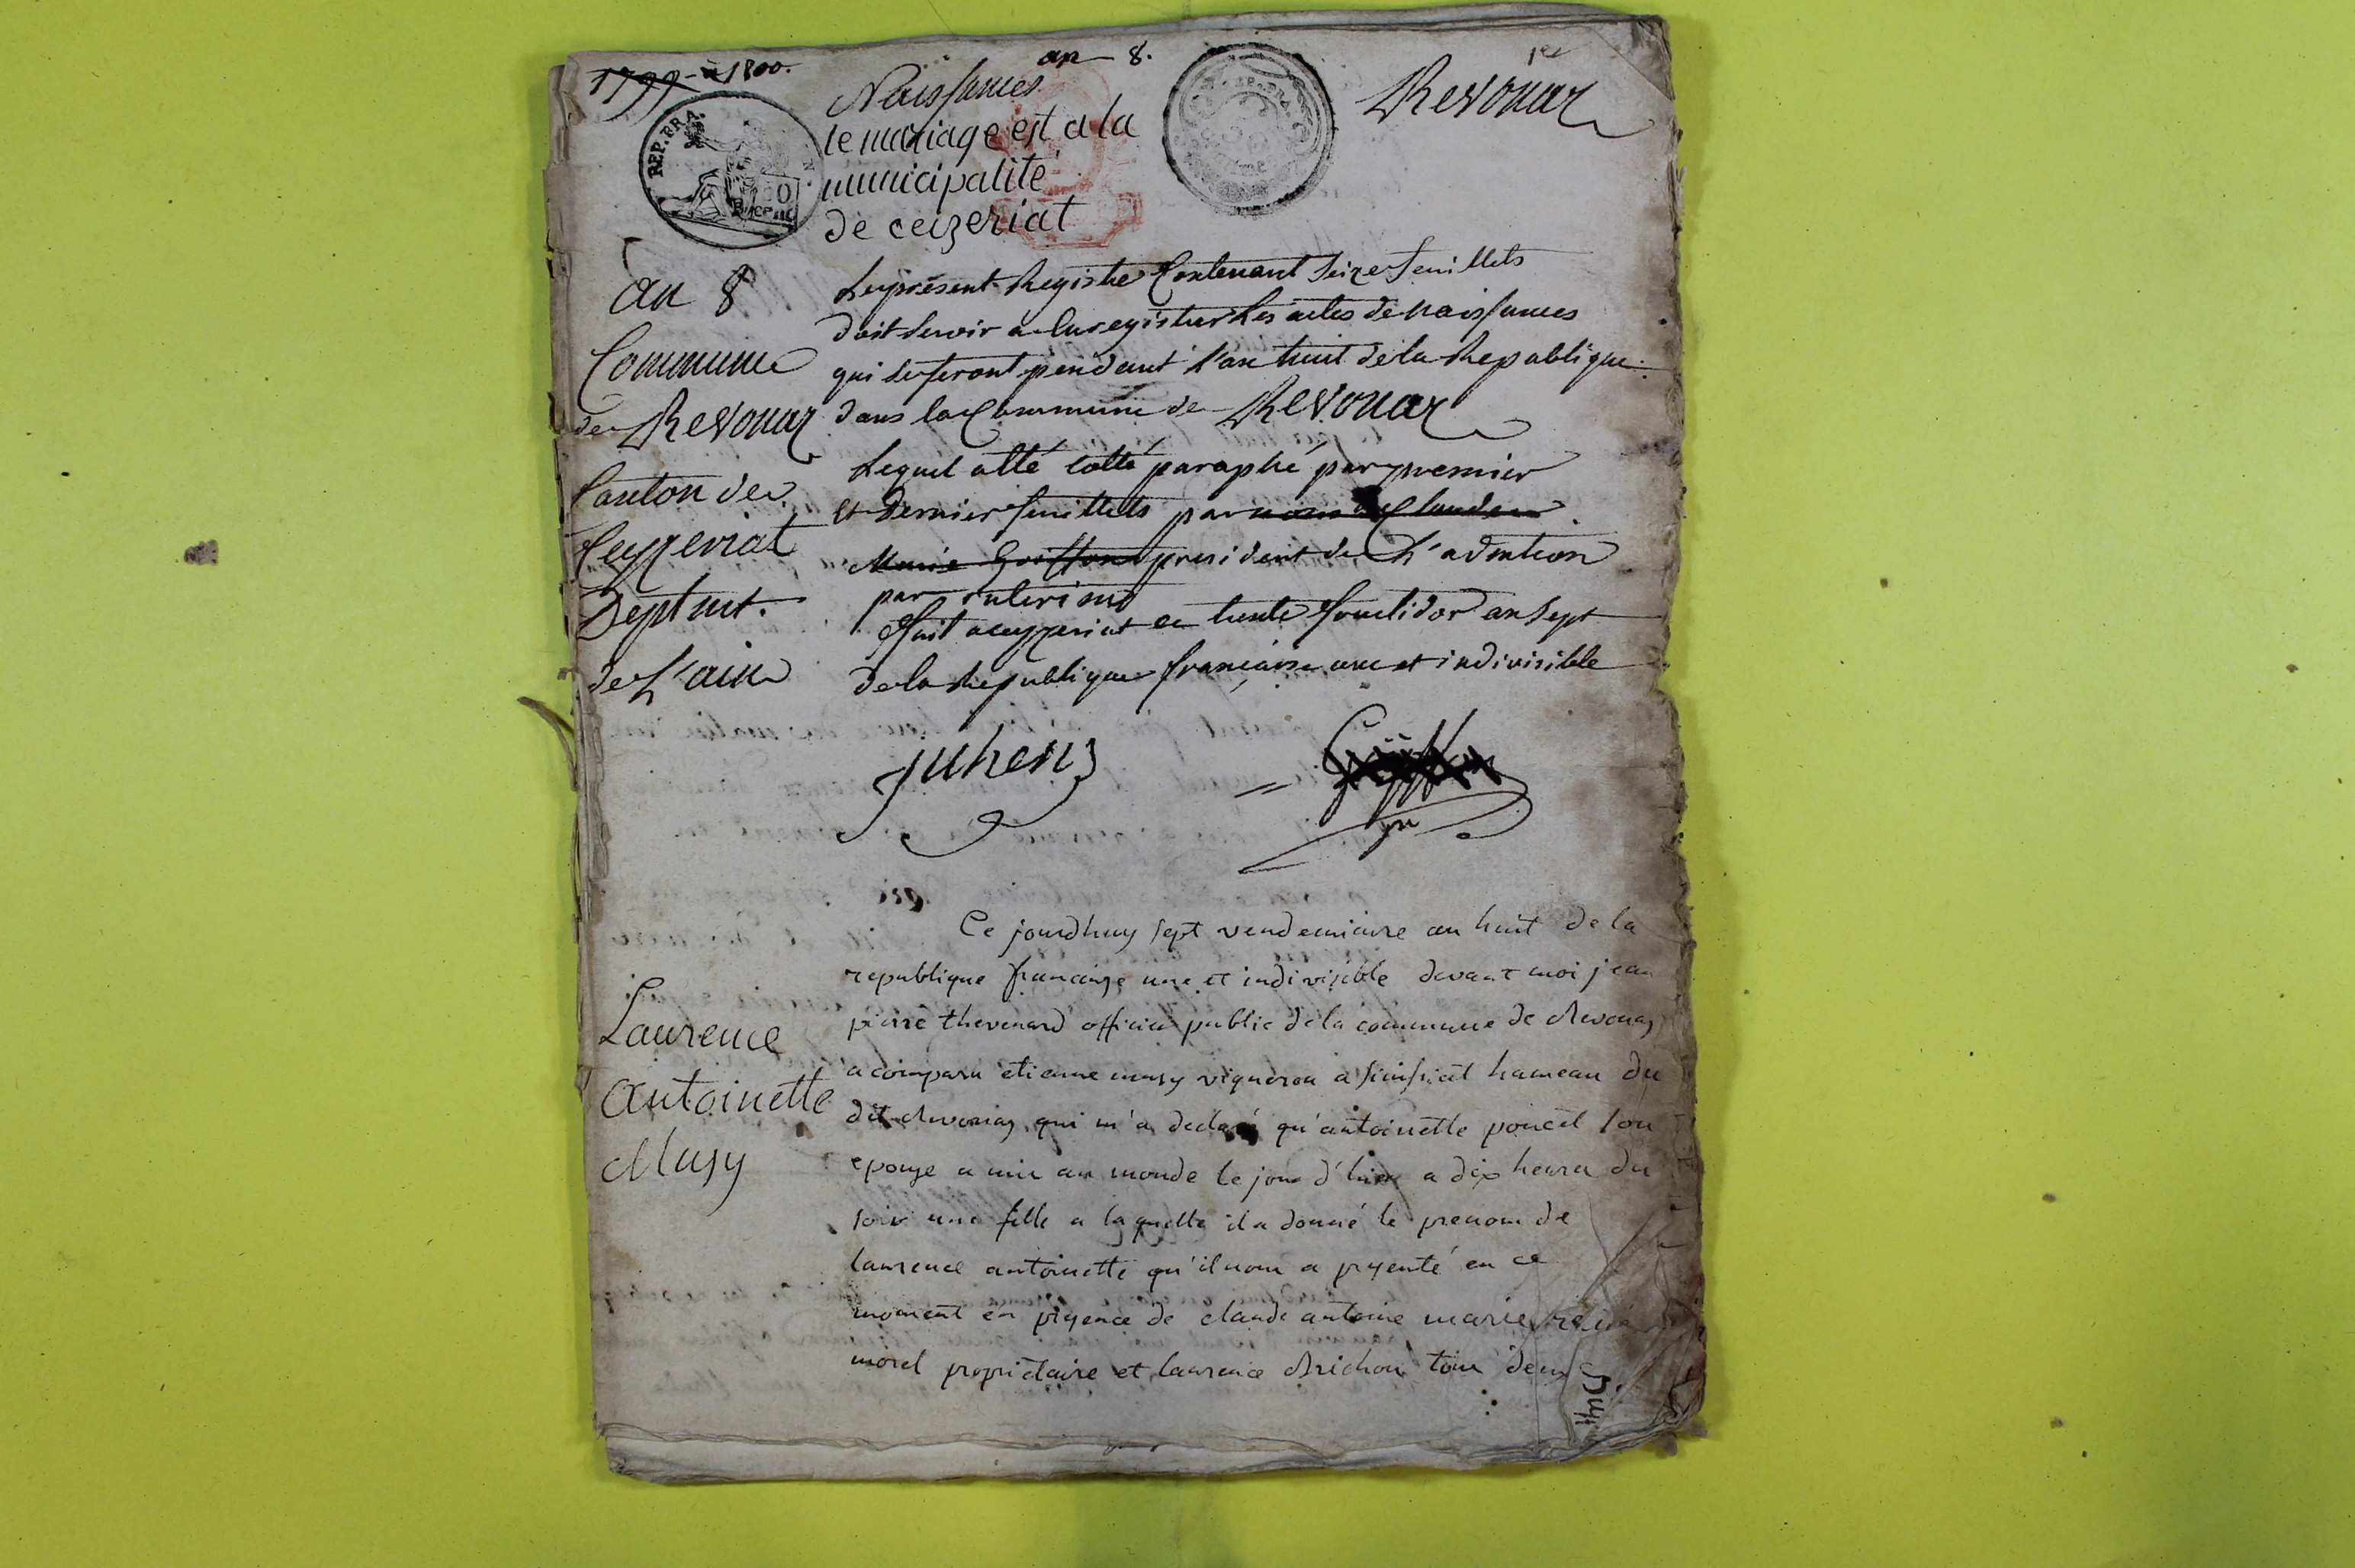 1799 - à 1800.
an 8.
1er
Revonaz
REP. FRA.
Naissances
le mariage est a la
municipalité
de ceizeriat
an 8
Commune
de Revonaz
Canton de
Ceyzeriat
Deptmt.
de L'ain
Le présent Registre Contenant Seize feuillets
doit Servir a Enregistrer Les actes de naissances
qui se feront pendant l'an huit de la Republique
dans la Commune de Revonaz
Lequel a été cotté paraphé par premier
et dernier feuillets par nous Claude
Marie Goiffon president de L'admtion
par interime
fait a ceyzeriat ce trente fructidor an sept
de la Republique française une et indivisible
Ce jourdhuy sept vendemiaire an huit de la
republique française une et indivisible devant moi jean
pierre thevenard officier public de la commune de Revonaz
a comparu etienne musy vigneron a Simsiat hameau du
dit Revonaz qui m'a declaré qu'antoinette poncet son
epouse a mis au monde le jour d'hier a dix heures du
soir une fille a laquelle il a donné le prenom de
laurence antoinette qu'il nous a presenté en ce
moment en presence de claude antoine marie
morel propriétaire et laurence Brichon tous deux
Laurence
Antoinette
Musy